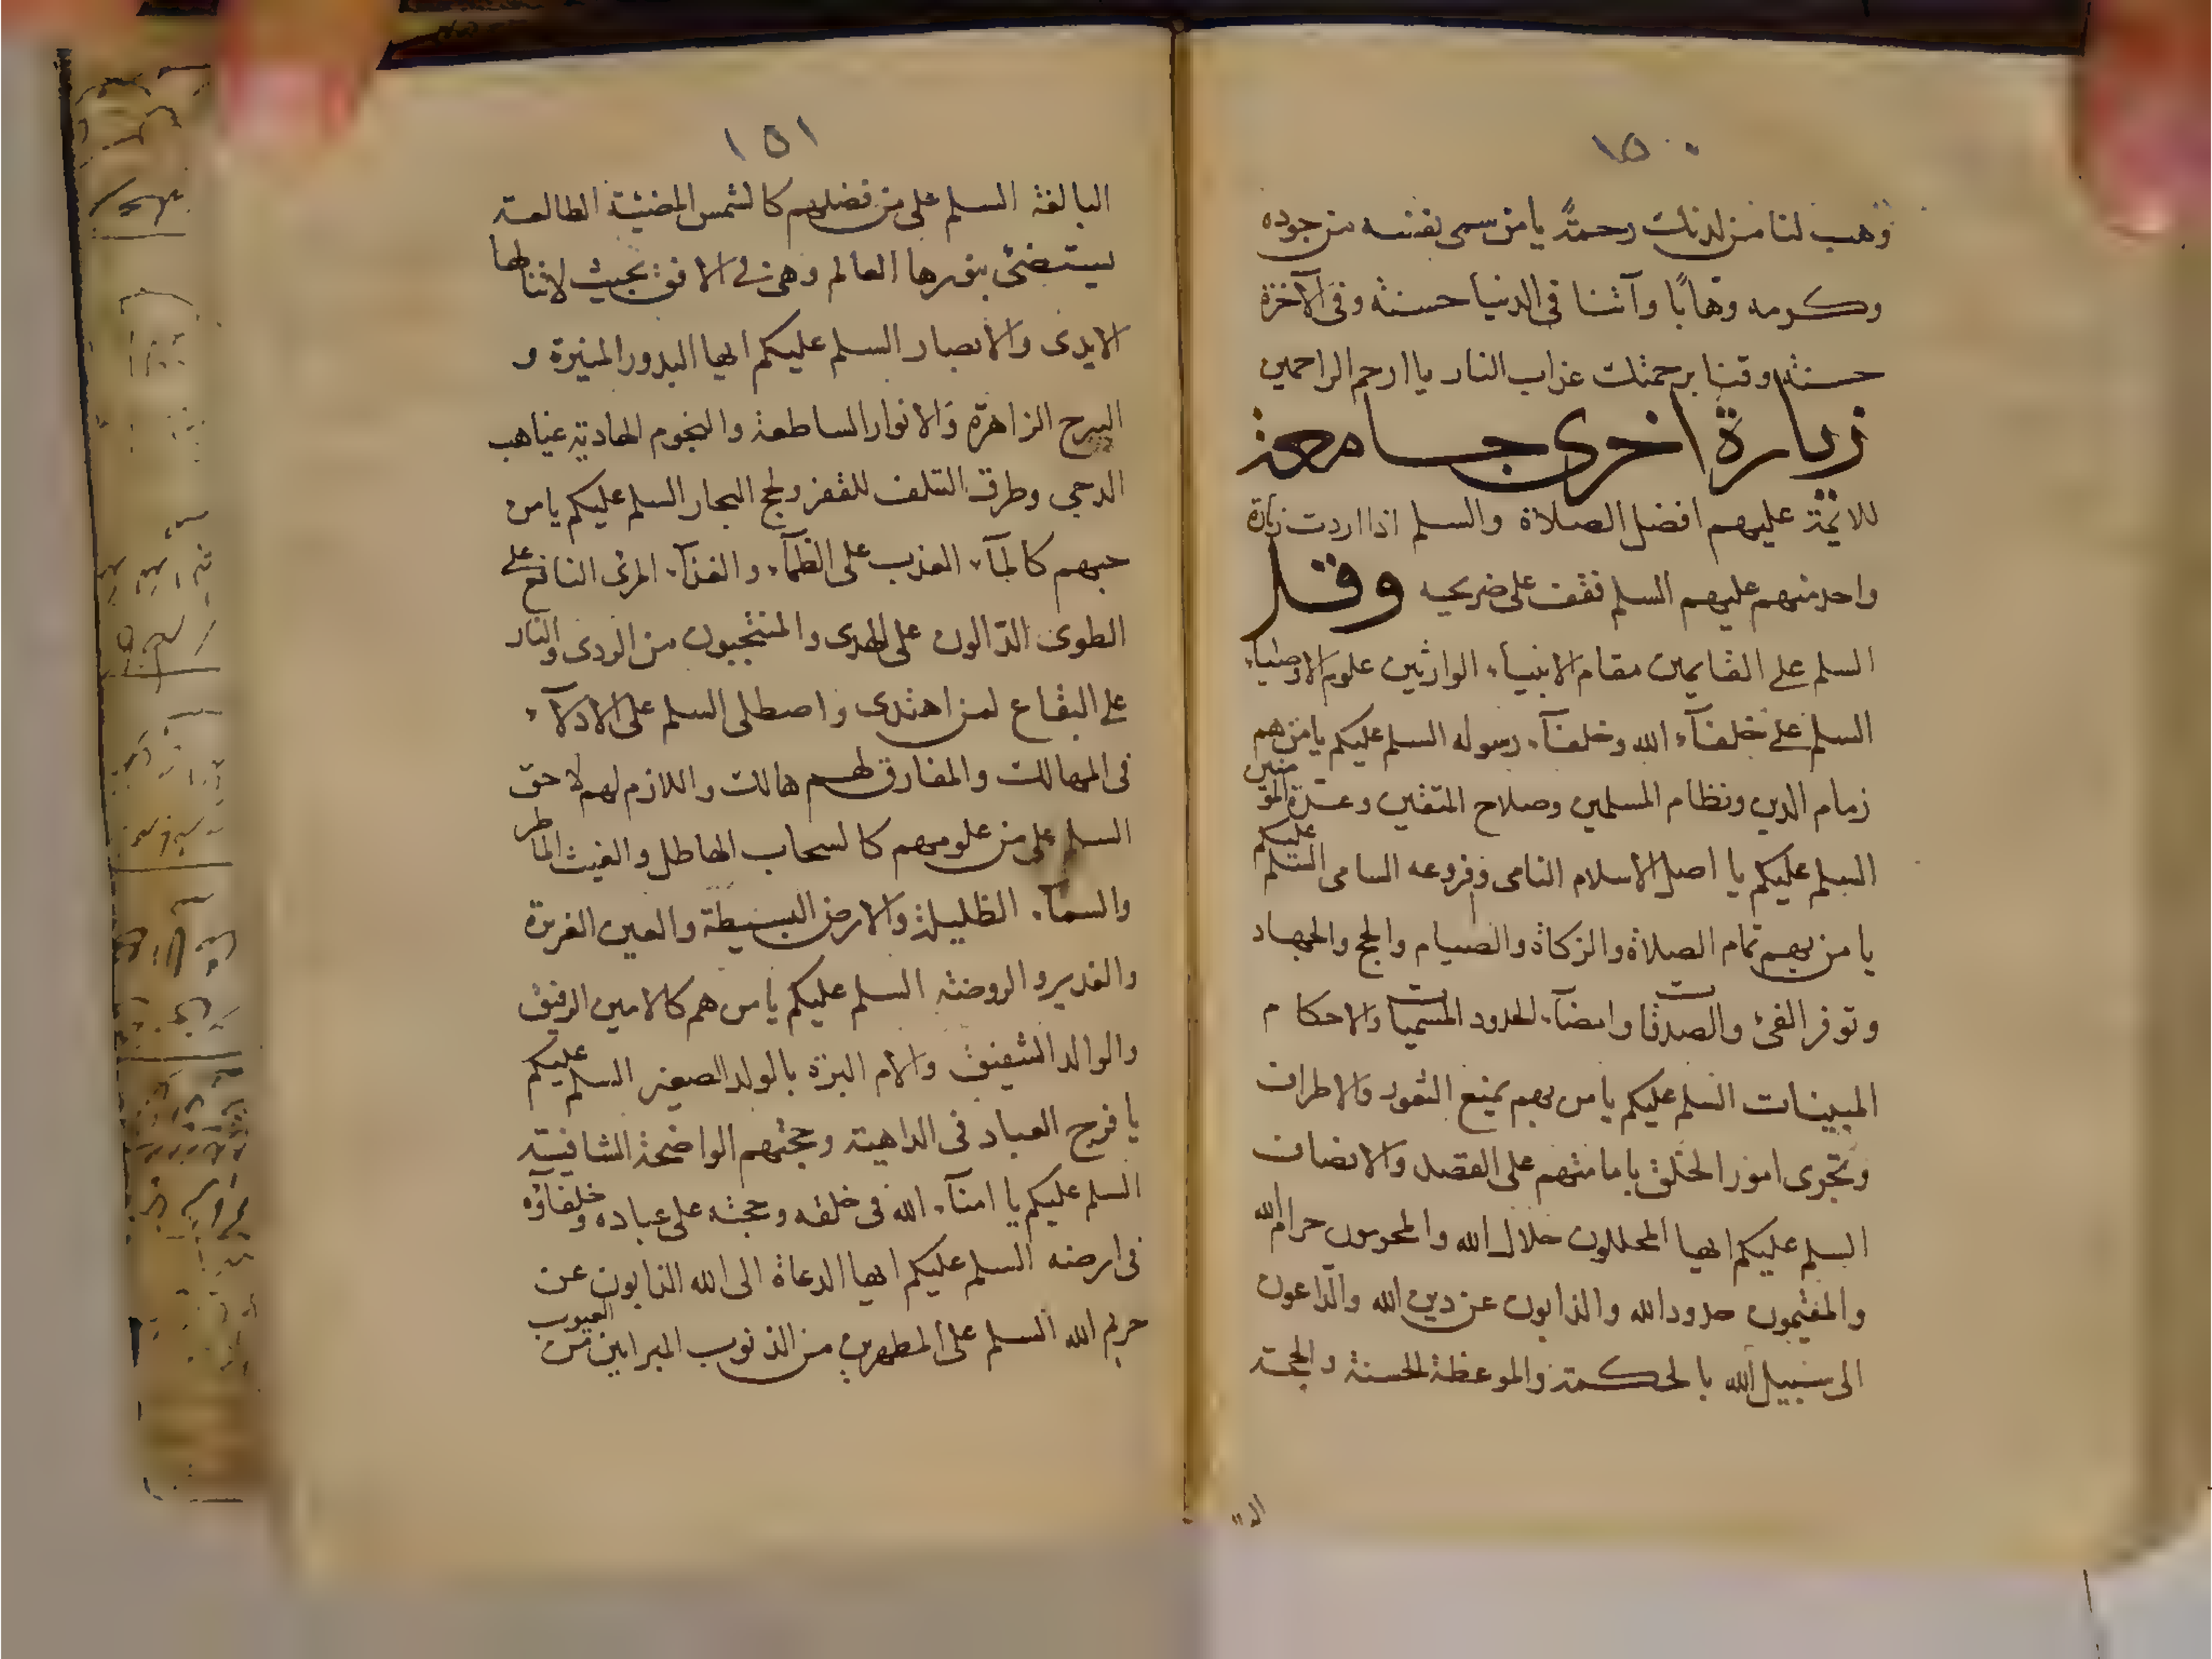 ١٥٠
وهب لنا من لدنك رحمةً يا من سمى نفسه من جوده
وكرمه وهابًا وآتنا في الدنيا حسنة وفي الآخرة
حسنة وقنا برحمتك عذاب النار يا ارحم الراحمين
زيارة اخرى جامعة
للائمة عليهم افضل الصلاة والسلم اذا اردت زيارة
واحد منهم عليهم السلم فقف على ضريحه وقل
السلم على القايمين مقام الانبياء الوارثين علوم الاوصياء
السلم على خلفآء الله وخلفآء رسوله السلم عليكم يا من هم
زمام الدين ونظام المسلمين وصلاح المتقين وعترة المؤمنين
السلم عليكم يا اصل الاسلام النامى وفروعه السامى السلم عليكم
يا من بهم تمام الصلاة والزكاة والصيام والحج والجهاد
وتوفر الفئ والصدقات وامضآء الحدود المسميات والاحكام
المبينات السلم عليكم يا من بهم يمنع الثغور والاطراف
وتجرى امور الخلق بامامتهم على القصد والانصاف
السلم عليكم ايها المحللون حلال الله والمحرمون حرام الله
والمقيمون حدود الله والذابون عن دين الله والداعون
الى سبيل الله بالحكمة والموعظة الحسنة والحجة
١٥١
البالغة السلم على من فضلهم كالشمس المضيئة الطالعة
يستضئ بنورها العالم وهى في الافق بحيث لا تنالها
الايدى والابصار السلم عليكم ايها البدور المنيرة و
السرج الزاهرة والانوار الساطعة والنجوم الهادية غياهب
الدجى وطرق التلف للقفز ولجج البحار السلم عليكم يا من
حبهم كالمآء العذب على الظمآء والغذآء المرئ النافع على
الطوى الدالون على الهدى والمنتجبون من الردى والنار
على البقاع لمن اهتدى واصطلى السلم على الادلآء
في المهالك والمفارق لهم هالك واللازم لهم لاحق
السلم على من علومهم كالسحاب الهاطل والغيث الماطر
والسمآء الظليلة والارض البسيطة والعين الغزيرة
والغدير والروضة السلم عليكم يا من هم كالامين الرفيق
والوالد الشفيق والام البرة بالولد الصغير السلم عليكم
يا فرج العباد في الداهية وحجتهم الواضحة الشافية
السلم عليكم يا امنآء الله في خلقه وحجته على عباده وخلفاؤه
في ارضه السلم عليكم ايها الدعاة الى الله الذابون عن
حريم الله السلم على المطهرين من الذنوب المبرايين من العيوب